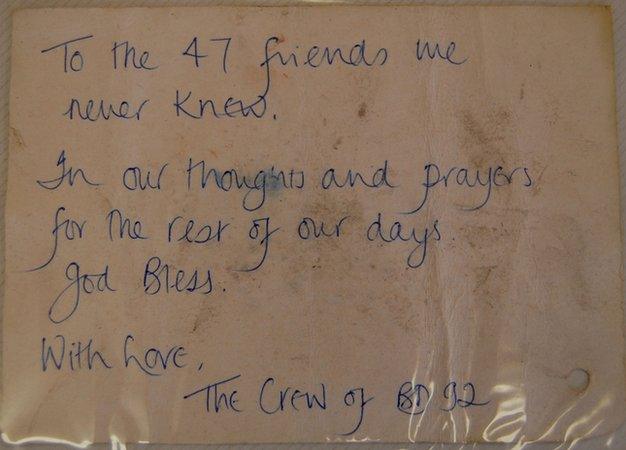 To the 47 friends we
never knew.
In our thoughts and prayers
for the rest of our days.
God Bless.
With Love,
The Crew of BD 92